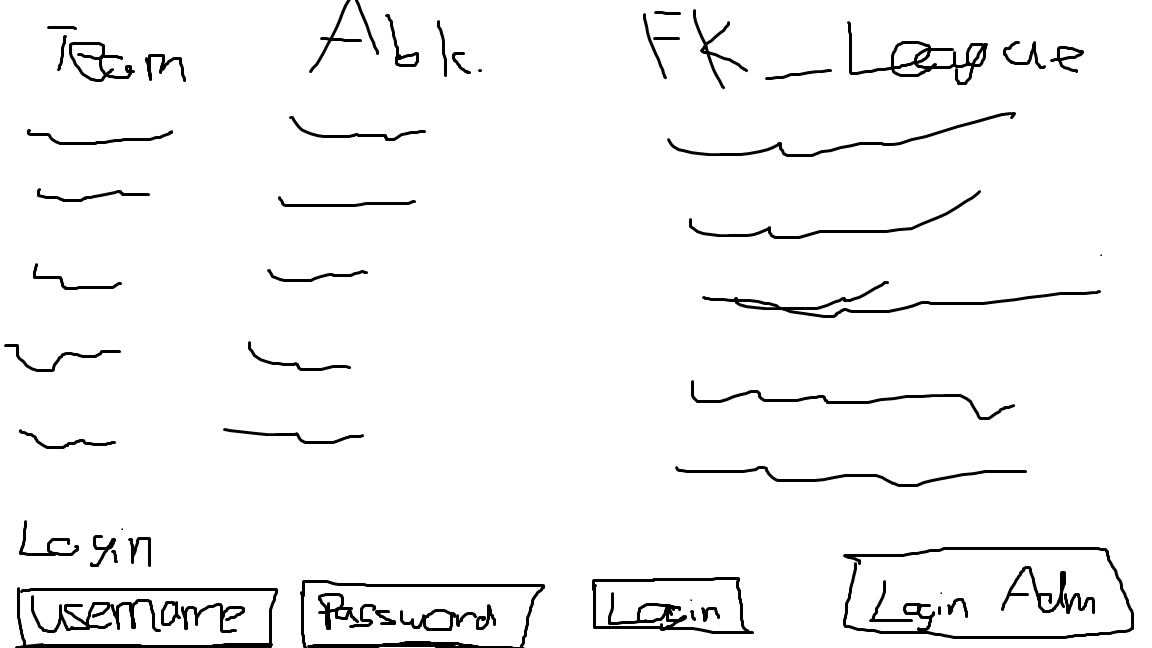 Team Abk. FK_League
Login
Username Password Login Login Adm